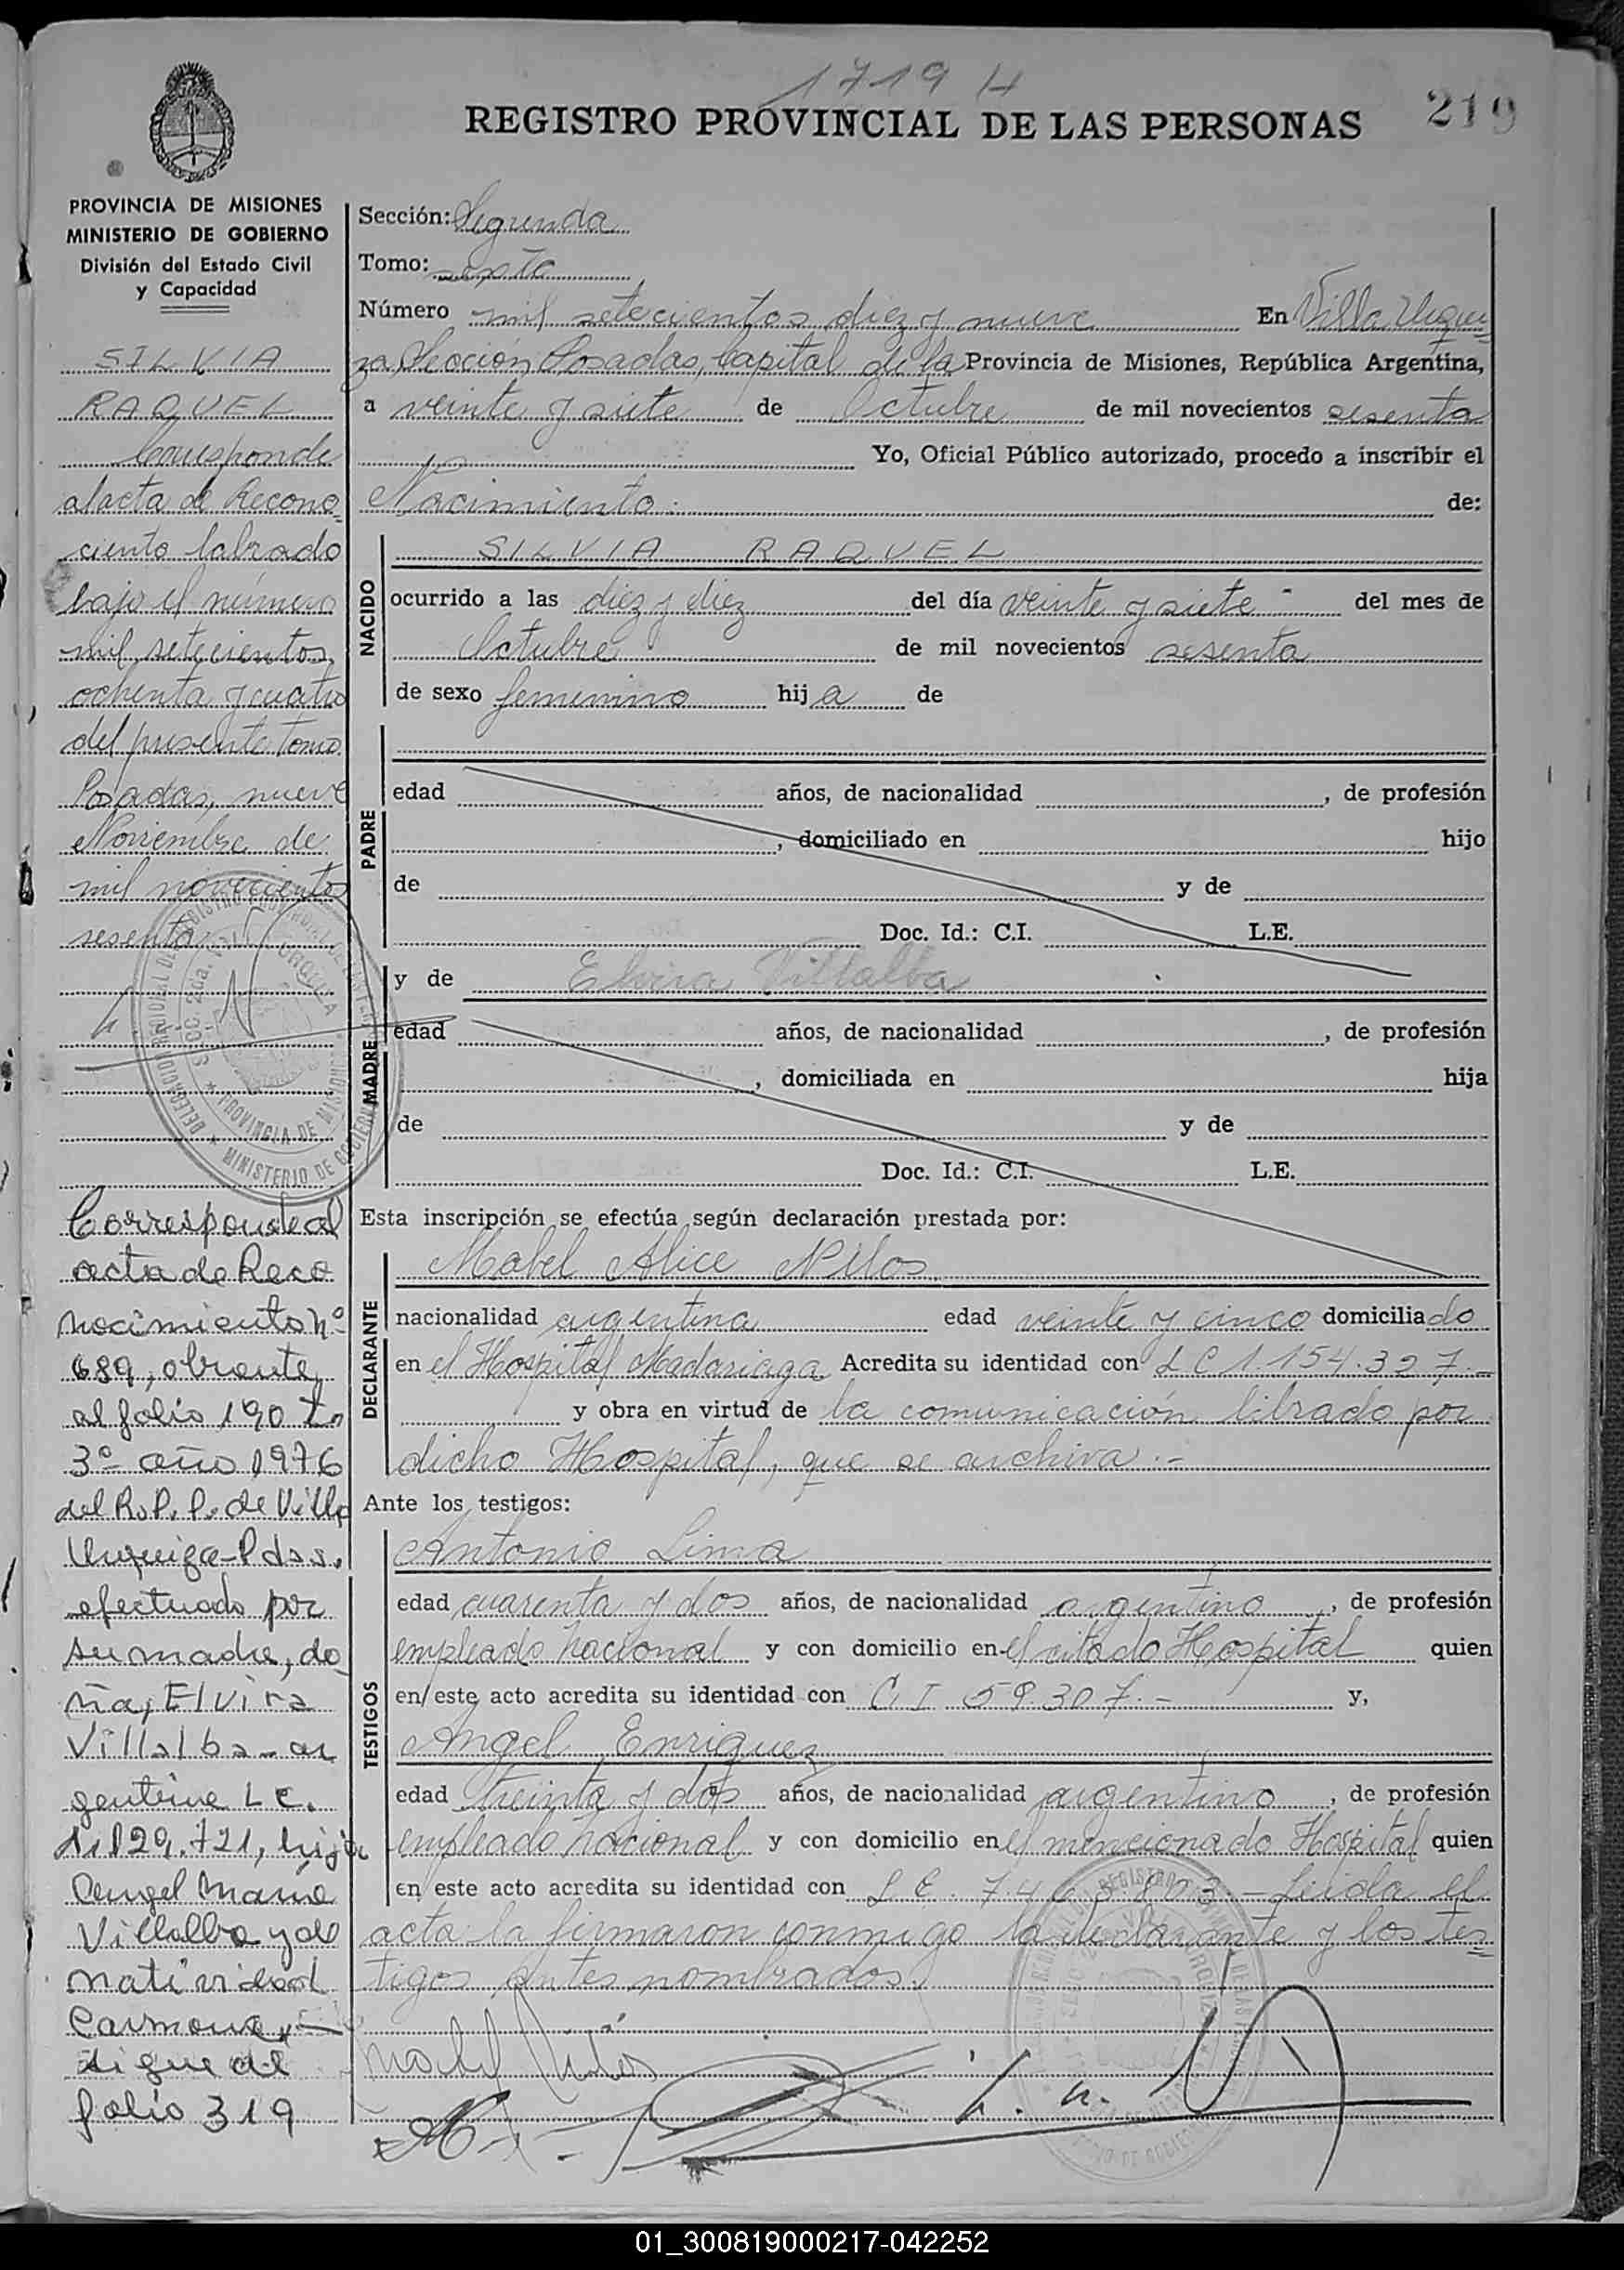 1719 H
REGISTRO PROVINCIAL DE LAS PERSONAS
219
PROVINCIA DE MISIONES
MINISTERIO DE GOBIERNO
División del Estado Civil
y Capacidad
SILVIA
RAQUEL
Corresponde
al acta de Recono=
ciento labrado
bajo el número
mil setecientos
ochenta y cuatro
del presente tomo
Posadas, nueve
Noviembre de
mil novecientos
sesenta
Corresponde al
acta de Reco
nocimiento nº
689, obrante
al folio 190 To
3º año 1976
del R.P.P. de Villa
Urquiza-Pdas.
efectuado por
su madre, do
ña, Elvira
Villalba-ar
gentina L.C.
hija
Angel María
Villalba y de
Natividad
Carmona,
sigue al
folio 319
Sección: Segunda
Tomo: sexto
Número mil setecientos diez y nueve En Villa Urqui=
za, Sección Posadas, Capital de la Provincia de Misiones, República Argentina,
a veinte y siete de Octubre de mil novecientos sesenta
Yo, Oficial Público autorizado, procedo a inscribir el
Nacimiento. de:
NACIDO
SILVIA RAQUEL
ocurrido a las diez y diez del día veinte y siete - del mes de
Octubre de mil novecientos sesenta
de sexo femenino hija de
PADRE
edad años, de nacionalidad , de profesión
, domiciliado en hijo
de y de
Doc. Id.: C.I. L.E.
MADRE
y de Elvira Villalba
edad años, de nacionalidad , de profesión
, domiciliada en hija
de y de
Doc. Id.: C.I. L.E.
Esta inscripción se efectúa según declaración prestada por:
DECLARANTE
Mabel Alice Nilos
nacionalidad argentina edad veinte y cinco domiciliado
en el Hospital Madariaga Acredita su identidad con L C 1.154.327.-
y obra en virtud de la comunicación librado por
dicho Hospital, que se archiva.-
Ante los testigos:
TESTIGOS
Antonio Lima
edad cuarenta y dos años, de nacionalidad argentino, de profesión
empleado nacional y con domicilio en el citado Hospital quien
en este acto acredita su identidad con C. I 59.307.- y,
Angel Enriquez
edad treinta y dos años, de nacionalidad argentino, de profesión
empleado nacional y con domicilio en el mencionado Hospital quien
en este acto acredita su identidad con L E. - Leida el
acta la firmaron conmigo la declarante y los tes=
tigos antes nombrados.
01_300819000217-042252